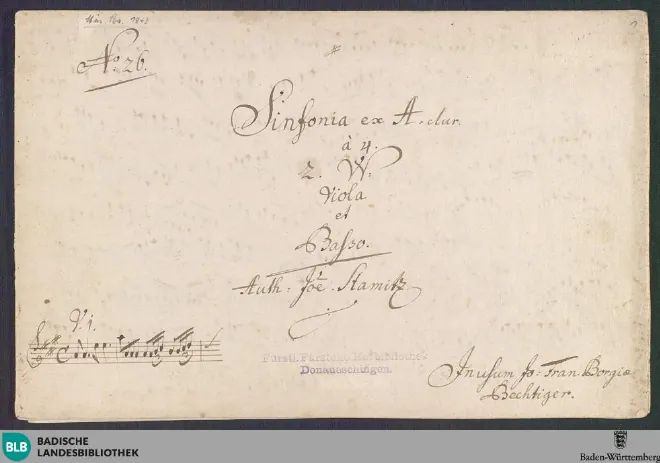 Mus. Ms. 1843
No. 26.
Sinfonia ex A. dur.
à 4.
2. VV.
Viola
et
Basso.
Auth: Joē. Stamitz
V. 1.
Fürstl. Fürstenb. Hofbibliothek
Donaueschingen.
In usum Jo: Fran. Borgiæ
Bechtiger.
BLB
BADISCHE
LANDESBIBLIOTHEK
Baden-Württemberg